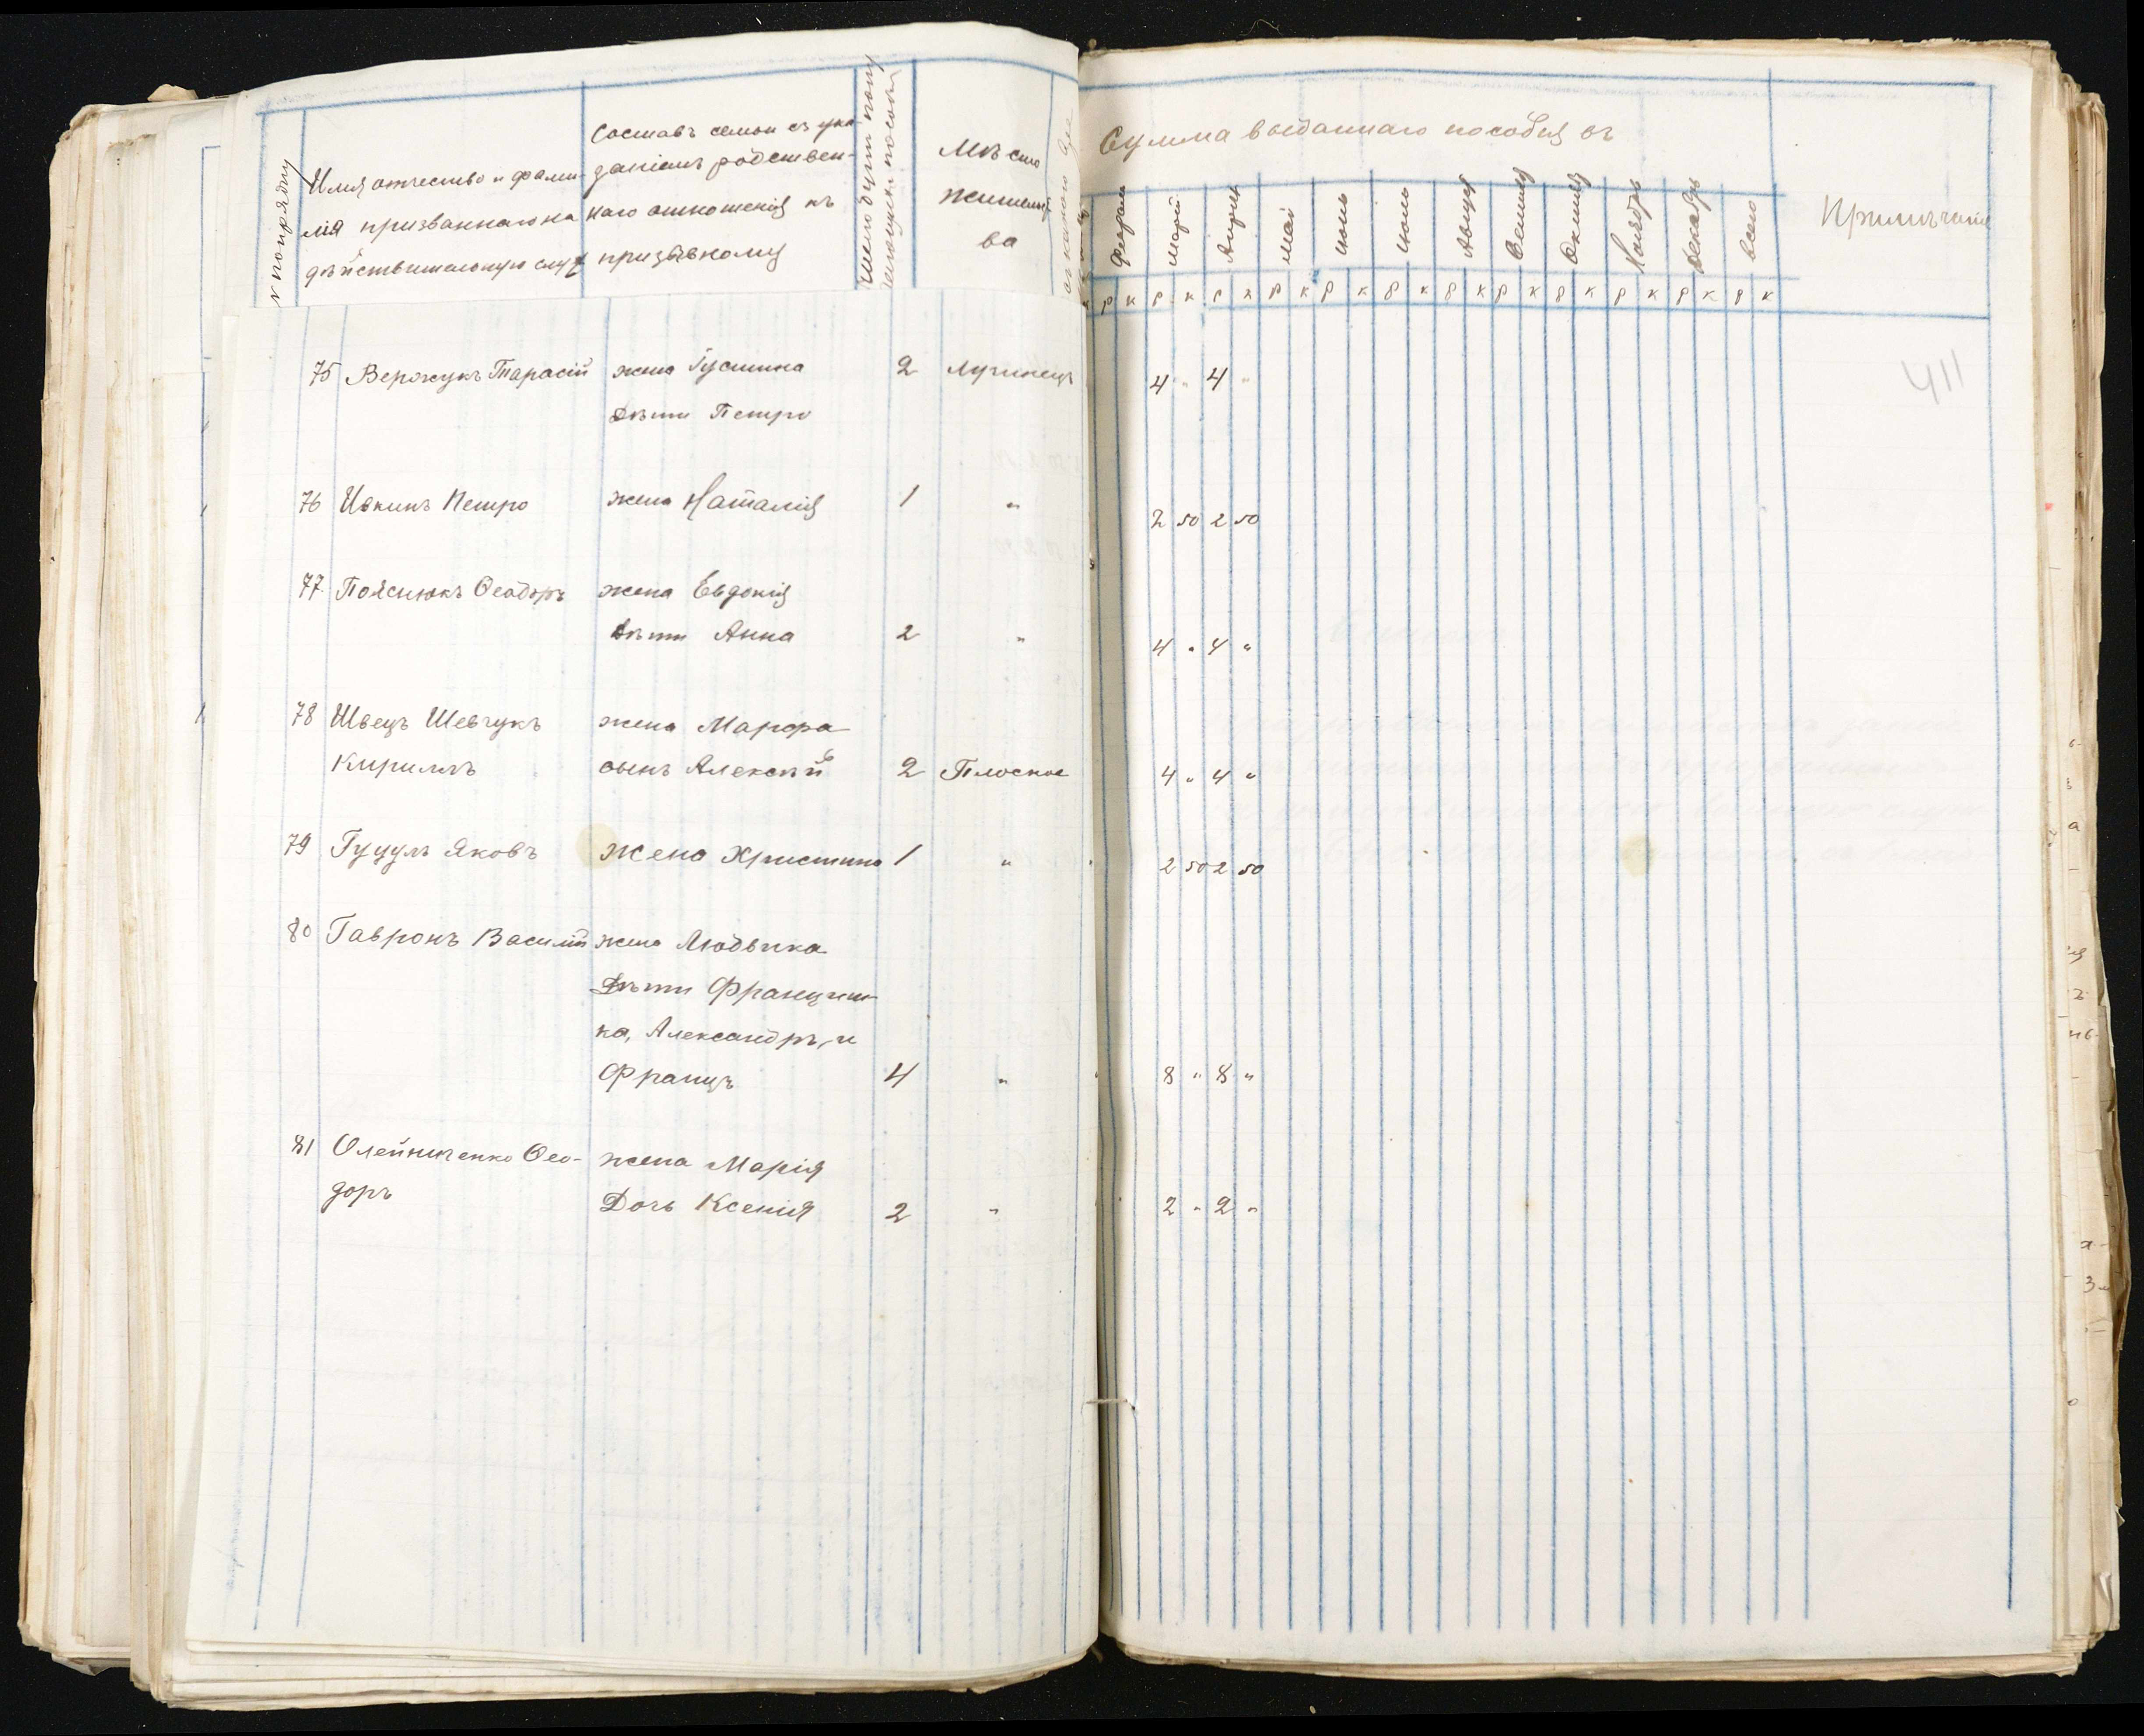 № по порядку
Имя отчество и фами-
лія призваннаго на
дѣйствительную служ
Составъ семьи съ ука-
заніемъ родствен-
наго отношенія къ
призывному
Мѣсто
жительст
ва
Сумма выданнаго пособія въ
Февраль
Мартъ
Апрѣль
Май
Іюнь
Іюль
Августъ
Сентябрь
Октябрь
Ноябрь
Декабрь
Всего
Примѣчаніе
р к р к р к р к р к р к р к р к р к р к р к р к
411
75 Вержукъ Тарасій жена Густина 2 Лучинецъ 4 " 4 "
дѣти Петро
76 Ивкинъ Петро жена Наталія 1 " 2 50 2 50
77 Пояснюкъ Ѳеодоръ жена Евдокія
дѣти Анна 2 " 4 " 4 "
78 Швецъ Шевчукъ жена Марфа
Кириллъ сынъ Алексѣй 2 Плоское 4 " 4 "
79 Гуцулъ Яковъ жена Христина 1 " 2 50 2 50
80 Гавронъ Василій жена Людвика
Дѣти Франциш-
ка, Александръ, и
Францъ 4 " 8 " 8 "
81 Олейниченко Ѳео- жена Марія
доръ Дочь Ксенія 2 " 2 " 2 "